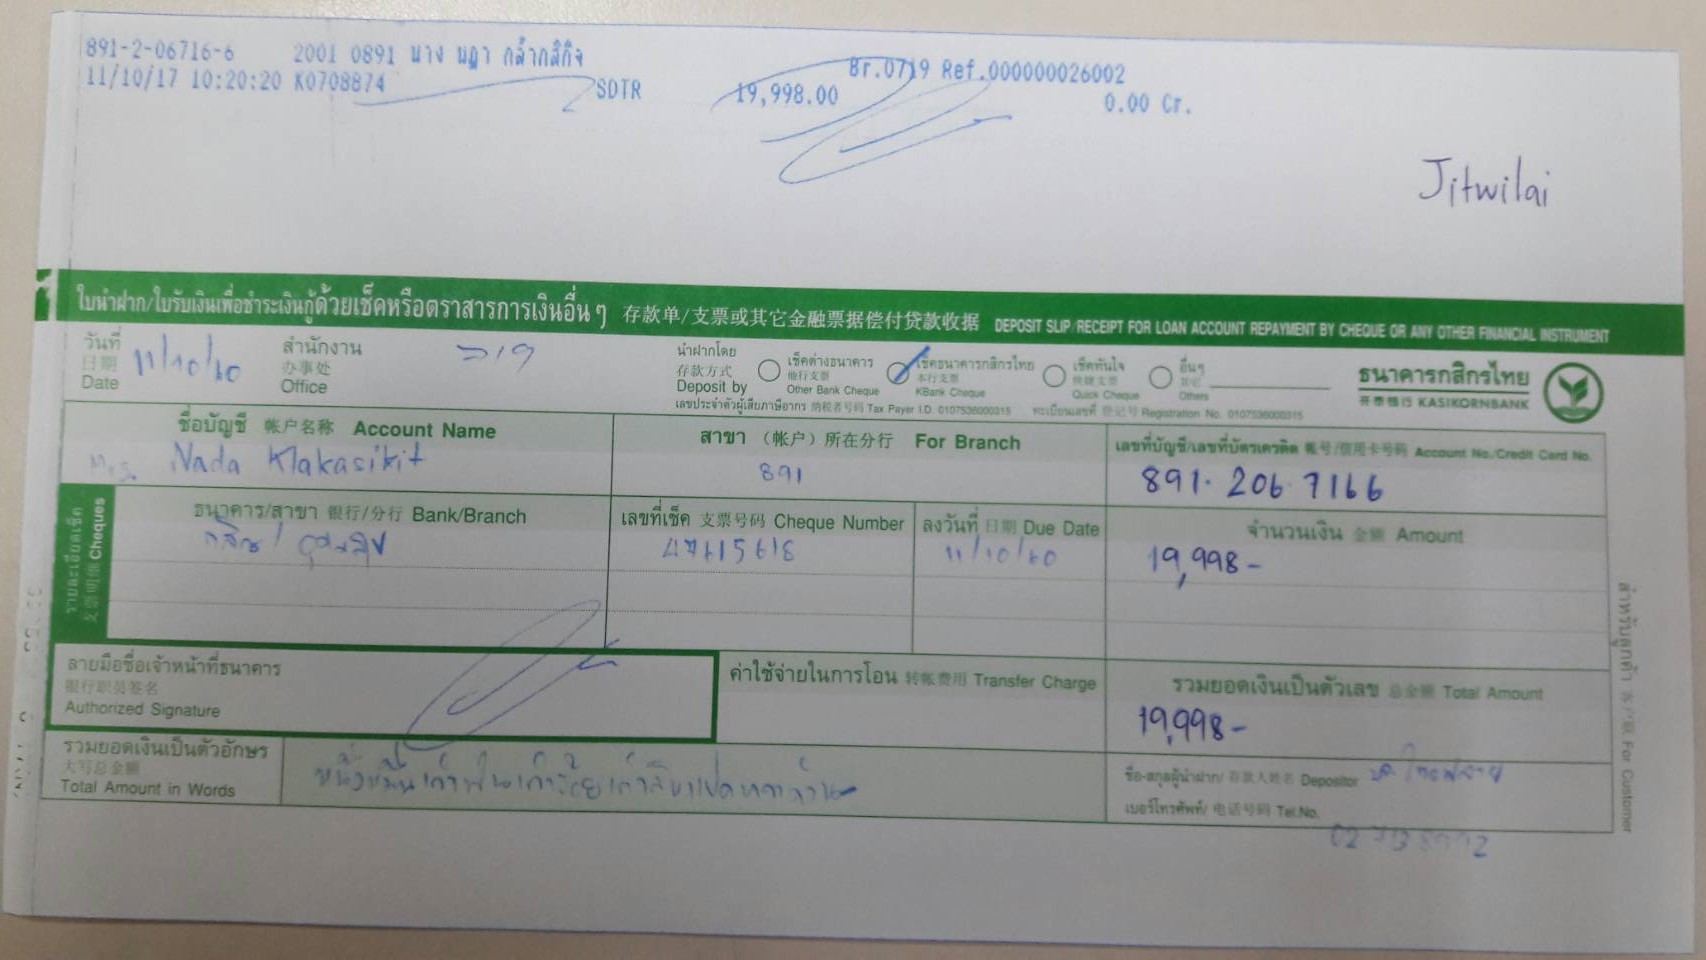 891-2-06716-6 2001 0891 นาง นฎา กล้ากสิกิจ Br.0719 Ref.000000026002
11/10/17 10:20:20 K0708874 SDTR 19,998.00 0.00 Cr.
Jitwilai
ใบนำฝาก/ใบรับเงินเพื่อชำระเงินกู้ด้วยเช็คหรือตราสารการเงินอื่นๆ 存款单/支票或其它金融票据偿付贷款收据 DEPOSIT SLIP/RECEIPT FOR LOAN ACCOUNT REPAYMENT BY CHEQUE OR ANY OTHER FINANCIAL INSTRUMENT
วันที่ 日期 Date 11/10/60
สำนักงาน 办事处 Office 719
นำฝากโดย 存款方式 Deposit by
เช็คต่างธนาคาร 他行支票 Other Bank Cheque
เช็คธนาคารกสิกรไทย 本行支票 KBank Cheque
เช็คทันใจ 快捷支票 Quick Cheque
อื่นๆ 其它 Others
ธนาคารกสิกรไทย
开泰银行 KASIKORNBANK
เลขประจำตัวผู้เสียภาษีอากร 纳税者号码 Tax Payer I.D. 0107536000315 ทะเบียนเลขที่ 登记号 Registration No. 0107536000315
ชื่อบัญชี 帐户名称 Account Name
Mrs. Nada Klakasikit
สาขา (帐户)所在分行 For Branch
891
เลขที่บัญชี/เลขที่บัตรเครดิต 帐号/信用卡号码 Account No./Credit Card No.
891-206-7166
รายละเอียดเช็ค 支票明细 Cheques
ธนาคาร/สาขา 银行/分行 Bank/Branch
เลขที่เช็ค 支票号码 Cheque Number
47615618
ลงวันที่ 日期 Due Date
11/10/60
จำนวนเงิน 金额 Amount
19,998-
ลายมือชื่อเจ้าหน้าที่ธนาคาร
银行职员签名
Authorized Signature
ค่าใช้จ่ายในการโอน 转帐费用 Transfer Charge
รวมยอดเงินเป็นตัวเลข 总金额 Total Amount
19,998-
รวมยอดเงินเป็นตัวอักษร
大写总金额
Total Amount in Words
หนึ่งหมื่นเก้าพันเก้าร้อยเก้าสิบแปดบาทถ้วน
ชื่อ-สกุลผู้นำฝาก/ 存款人姓名 Depositor
เบอร์โทรศัพท์/ 电话号码 Tel.No.
สำหรับลูกค้า 客户联 For Customer